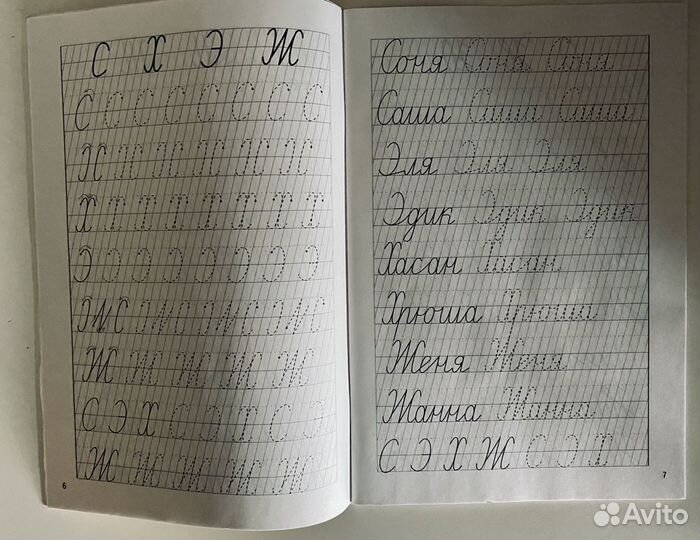 С Х Э Ж
С С С С С С С С
Х Х Х Х Х Х
Х Х Х Х Х Х Х
Э Э Э Э Э Э Э Э
Ж Ж Ж Ж Ж
С Э Х С Э Х С Э
Ж Ж Ж Ж Ж
6
Соня Соня Соня
Саша Саша Саша
Эля Эля Эля
Эдик Эдик Эдик
Хасан Хасан
Хрюша Хрюша
Женя Женя
Жанна Жанна
С Э Х Ж С Э Х
7
Avito